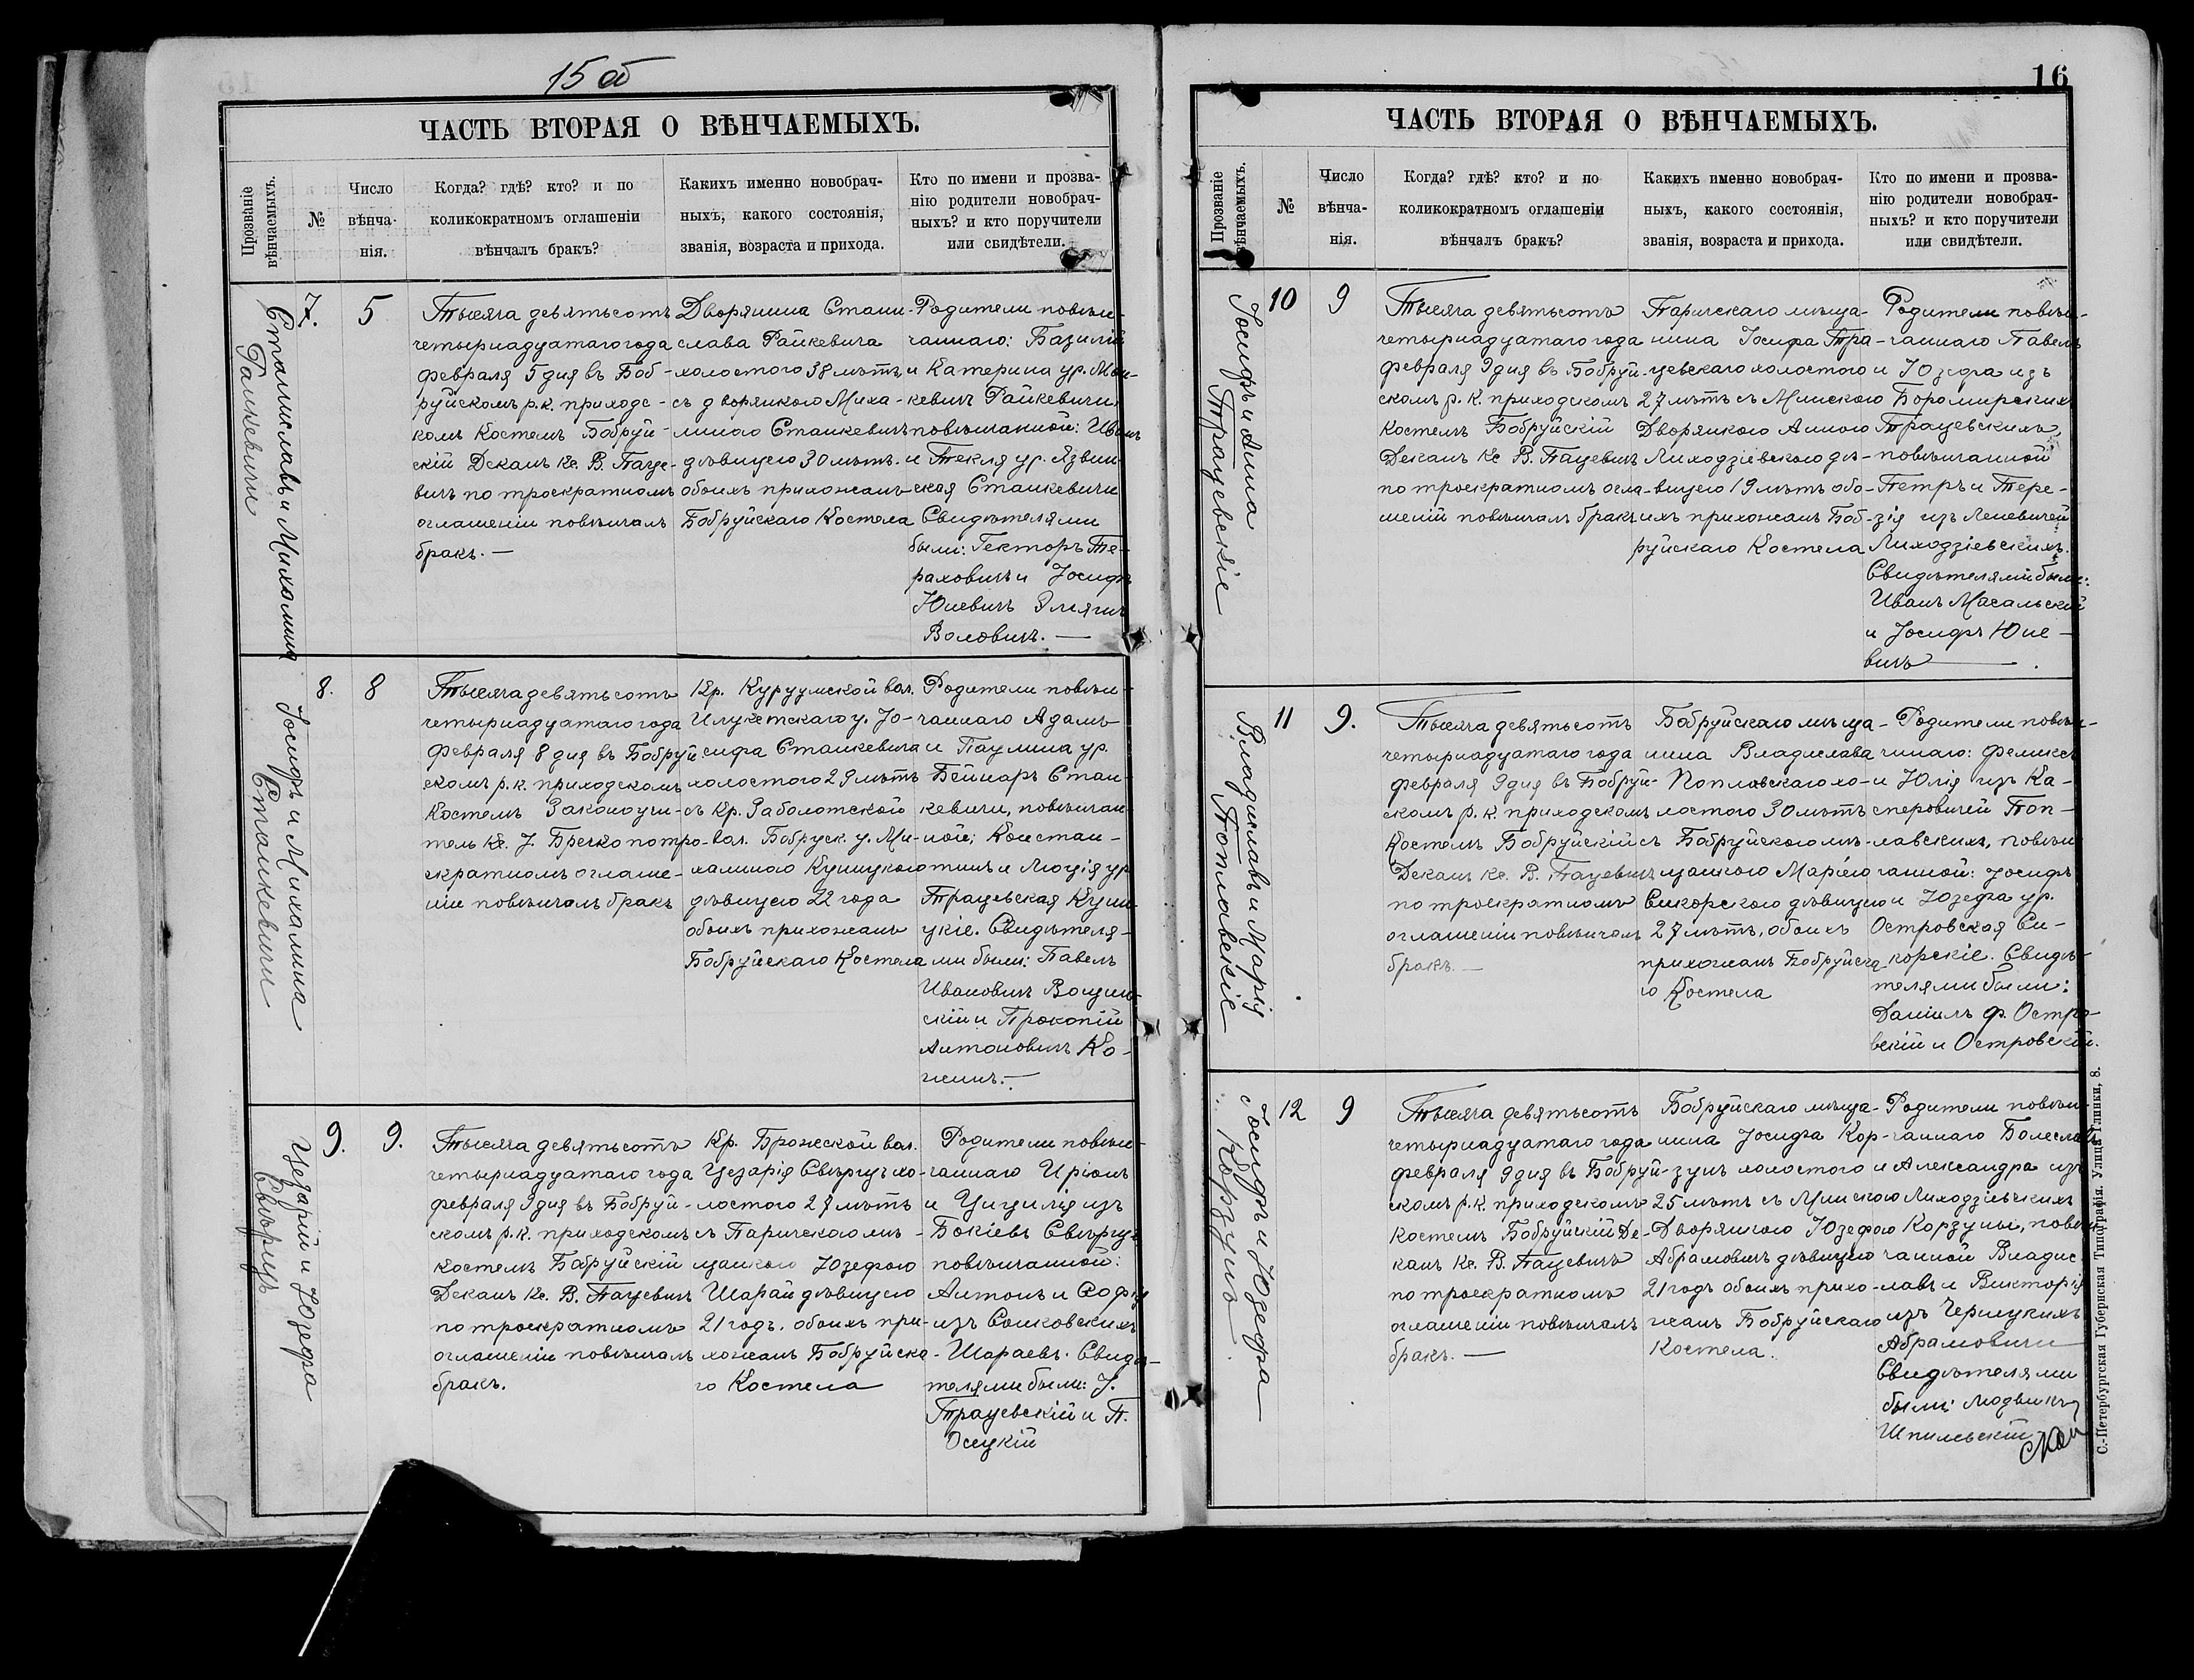 15 об
ЧАСТЬ ВТОРАЯ О ВѢНЧАЕМЫХЪ.
Прозваніе
вѣнчаемыхъ.
№
Число
вѣнча-
нія.
Когда? гдѣ? кто? и по
коликократномъ оглашеніи
вѣнчалъ бракъ?
Какихъ именно новобрач-
ныхъ, какого состоянія,
званія, возраста и прихода.
Кто по имени и прозва-
нію родители новобрач-
ныхъ? и кто поручители
или свидѣтели.
Станиславъ и Михалина
Райкевичи
7.
5
Тысяча девятьсотъ
четырнадцатаго года
февраля 5 дня въ Боб-
руйскомъ р.к. приходс-
комъ Костелѣ Бобруй-
скій Деканъ Кс. В. Паце-
вичъ по троекратномъ
оглашеніи повѣнчалъ
бракъ. —
Дворянина Стани-
слава Райкевича
холостого 38 лѣтъ,
съ дворянкою Миха-
линою Станкевичъ
дѣвицею 30 лѣтъ.
обоихъ прихожанъ
Бобруйскаго Костела
Родители повѣн-
чаннаго: Базилій
и Катерина ур. Мин-
кевичъ Райкевичи,
повѣнчанной: Иванъ
и Текля ур. Язвин-
ская Станкевичи
Свидѣтелями
были: Гекторъ Те-
раховичъ и Іосифъ
Юневичъ
Воловичъ. —
Іосифъ и Михалина
Станкевичи
8.
8
Тысяча девятьсотъ
четырнадцатаго года
февраля 8 дня въ Бобруй-
скомъ р.к. приходскомъ
Костелѣ Законоучи-
тель Кс. І. Бречко по тро-
екратномъ оглаше-
ніи повѣнчалъ бракъ
Кр. Куруумской вол.
Илукстскаго у. Іо-
сифа Станкевича
холостого 29 лѣтъ
съ Кр. Заболотской
вол. Бобруск. у. Ми-
халиною Куницкою
дѣвицею 22 года
обоихъ прихожанъ
Бобруйскаго Костела
Родители повѣн-
чаннаго Адамъ
и Паулина ур.
Бейнаръ Стан-
кевичи, повѣнчан
ной: Констан-
тинъ и Люція ур.
Трацевская Куни-
цкіе. Свидѣтеля-
ми были: Павелъ
Ивановичъ Вощин-
скій и Прокопій
Антоновичъ Ко-
жичъ. —
Цезарій и Юзефа
Свѣрщъ
9.
9.
Тысяча девятьсотъ
четырнадцатаго года
февраля 9 дня въ Бобруй-
скомъ р.к. приходскомъ
костелѣ Бобруйскій
Деканъ Кс. В. Пацевичъ
по троекратномъ
оглашеніи повѣнчалъ
бракъ.
Кр. Брожской вол.
Цезарія Свѣрщъ хо-
лостого 27 лѣтъ
съ Паричскою мѣ-
щанкою Юзефою
Шарай дѣвицею
21 годъ. обоихъ при-
хожанъ Бобруйска-
го Костела
Родители повѣн-
чаннаго Иріонъ
и Цицилія изъ
Бокіевъ Свѣрщъ
повѣнчанной:
Антонъ и Софія
изъ Сенковскихъ
Шараевъ. Свидѣ-
телями были: І.
Трацевскій и П.
Осецкій
16
ЧАСТЬ ВТОРАЯ О ВѢНЧАЕМЫХЪ.
Прозваніе
вѣнчаемыхъ.
№
Число
вѣнча-
нія.
Когда? гдѣ? кто? и по
коликократномъ оглашеніи
вѣнчалъ бракъ?
Какихъ именно новобрач-
ныхъ, какого состоянія,
званія, возраста и прихода.
Кто по имени и прозва-
нію родители новобрач-
ныхъ? и кто поручители
или свидѣтели.
Іосифъ и Анна
Трацевскіе
10
9
Тысяча девятьсотъ
четырнадцатаго года
февраля 9 дня въ Бобруй-
скомъ р. к. приходскомъ
Костелѣ Бобруйскій
Деканъ Кс В. Пацевичъ
по троекратномъ огла-
шеній повѣнчалъ бракъ
Паричскаго мѣща-
нина Іосифа Тра-
цевскаго холостого
27 лѣтъ съ Минскою
Дворянкою Анною
Лиходзіевскою дѣ-
вицею 19 лѣтъ обо-
ихъ прихожанъ Боб-
руйскаго Костела
Родители повѣн-
чаннаго Павелъ
и Юзефа изъ
Боромирскихъ
Трацевскихъ,
повѣнчанной
Петръ и Тере-
зія изъ Леневичей
Лиходзіевскихъ.
Свидѣтелями были:
Иванъ Масальскій
и Іосифъ Юне-
вичъ — .
Владиславъ и Марія
Поплавскіе
11
9.
Тысяча девятьсотъ
четырнадцатаго года
февраля 9 дня въ Бобруй-
скомъ р. к. приходскомъ
Костелѣ Бобруйскій
Деканъ Кс. В. Пацевичъ
по троекратномъ
оглашеніи повѣнчалъ
бракъ. —
Бобруйскаго мѣща-
нина Владислава
Поплавскаго хо-
лостого 30 лѣтъ
съ Бобруйскою мѣ-
щанкою Маріею
Сикорскою дѣвицею
27 лѣтъ, обоихъ
прихожанъ Бобруйска
го Костела
Родители повѣн-
чннаго: Феликсъ
и Юлія изъ Ка-
сперовичей Поп-
лавскихъ, повѣн
чанной: Іосифъ
и Юзефа ур.
Островская Си-
корскіе. Свидѣ-
телями были:
Даніилъ Ф. Остро-
вскій и Островскій.
Іосифъ и Юзефа
Корзунъ
12
9
Тысяча девятьсотъ
четырнадцатаго года
февраля 9 дня въ Бобруй-
скомъ р.к. приходскомъ
костелѣ Бобруйскій Де-
канъ Кс. В. Пацевичъ
по троекратномъ
оглашеніи повѣнчалъ
бракъ. —
Бобруйскаго мѣща-
нина Іосифа Кор-
зунъ холостого
25 лѣтъ съ Минскою
Дворянкою Юзефою
Абрамовичъ дѣвицею
21 годъ обоихъ прихо-
жанъ Бобруйскаго
Костела.
Родители повѣн-
чаннаго Болеславъ
и Александра изъ
Лиходзіевскихъ
Корзуны, повѣн
чанной Владис-
лавъ и Викторія
изъ Чернуцкихъ
Абрамовичи
Свидѣтелями
были: Людвикъ
Шпилевскій
С.-Петербургская Губернская Типографія. Улица Глинки, 8.